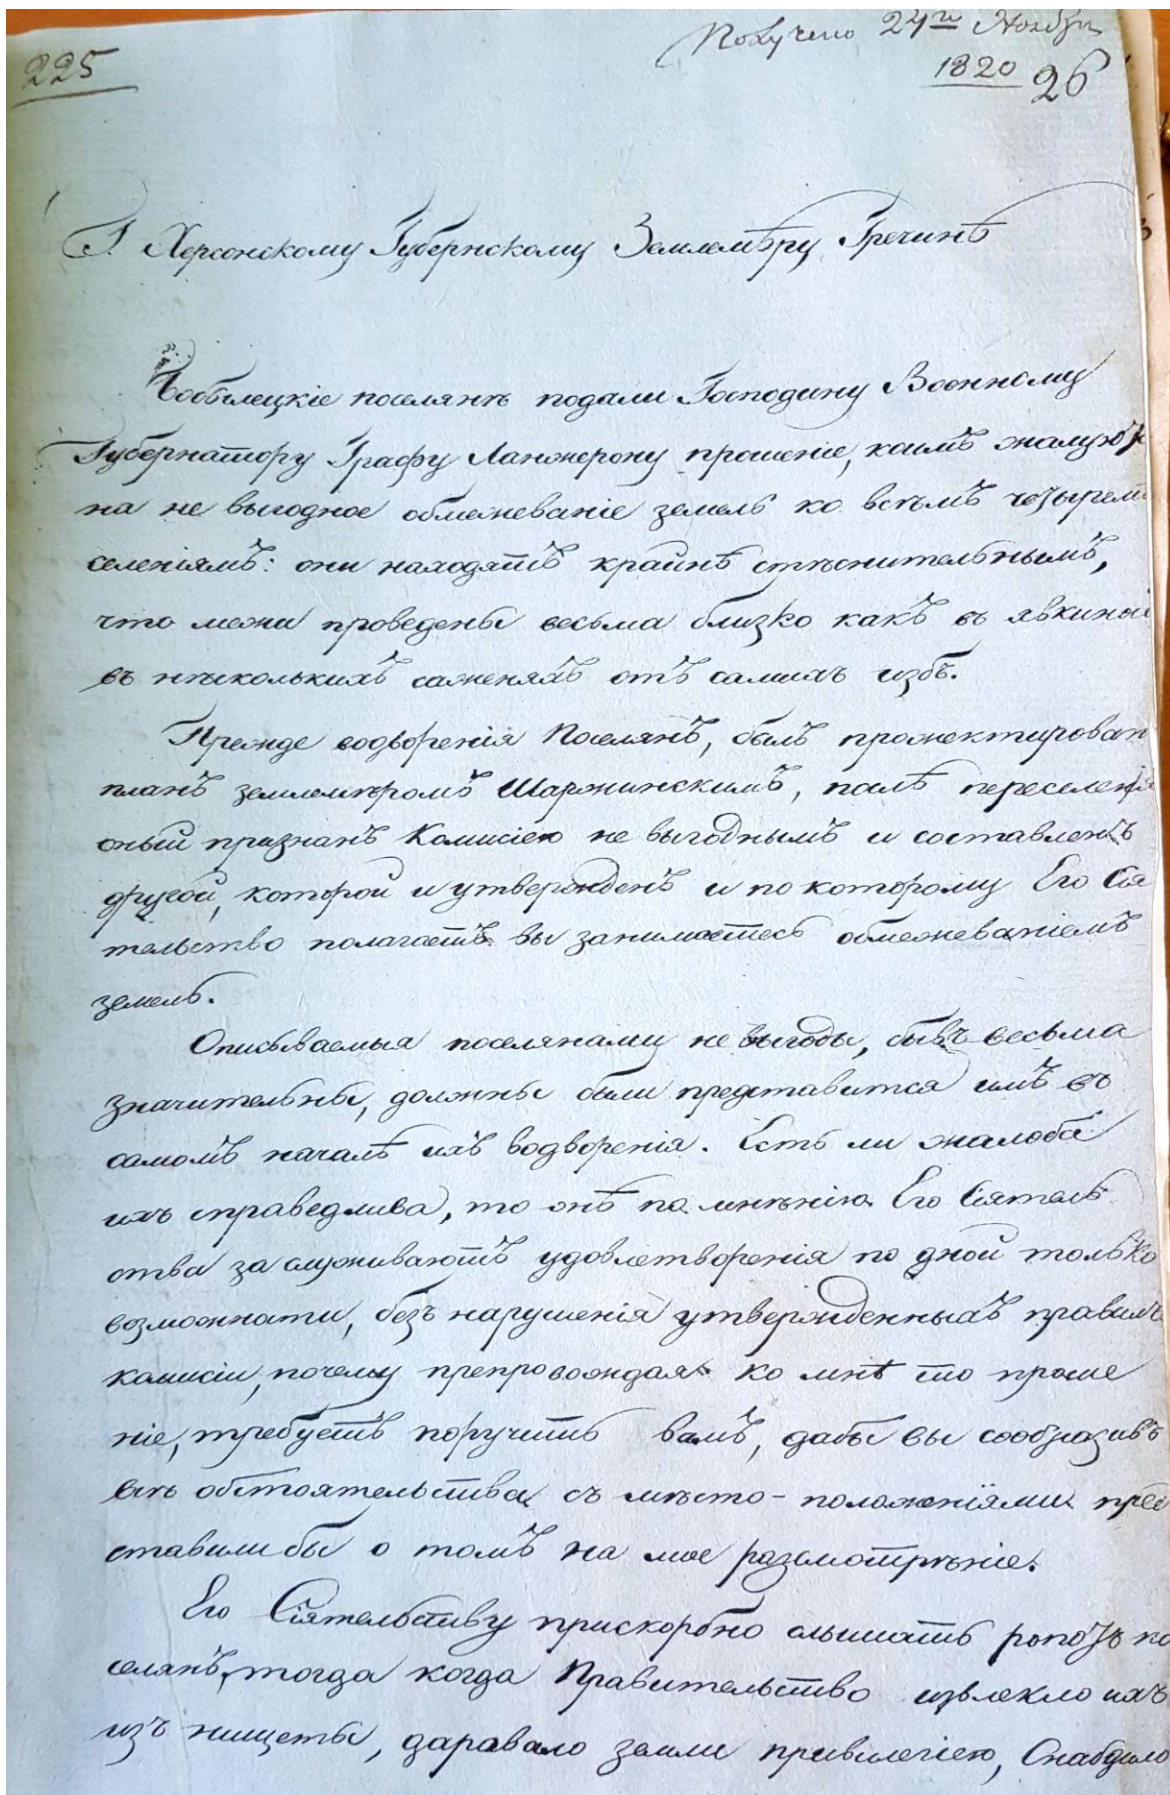 225
Получено 24го Ноября
1820 26
Г. Херсонскому Губернскому Землемѣру Гречинѣ
поселяне подали Господину Военному
Губернатору Графу Ланжерону прошеніе, коимъ жалуютъ
на не выгодное обмежеваніе земель ко всѣмъ четырем
селеніямъ: они находятъ крайнѣ стѣснительнымъ,
что межи проведены весьма близко какъ въ
въ нѣсколькихъ саженяхъ отъ самихъ избъ.
Прежде водворенія Поселянъ, былъ прожектирован
планъ землемѣромъ Шаржинскимъ, послѣ переселенія
оный признанъ Комисіею не выгоднымъ и составленъ
другой, которой и утвержденъ и по которому Его Сія
тельство полагаетъ вы занимаетесь обмежеваніемъ
земель.
Описываемыя поселянами не выгоды, бывъ весьма
значительны, должны были представится имъ въ
самомъ началѣ ихъ водворенія. Есть ли жалоба
ихъ справедлива, то онѣ по мнѣнію Его Сіятель
ства заслуживаютъ удовлетворенія по одной только
возможности, безъ нарушенія утвержденныхъ правилъ
комисіи, почему препровождая ко мнѣ сто проше
ніе, требуетъ поручить вамъ, дабы вы сообразивъ
всѣ обстоятельства съ мѣсто-положеніями пред
ставили бы о томъ на мое разсмотрѣніе.
Его Сіятельству прискорбно слышать ропотъ по
селянъ, тогда когда Правительство извлекло ихъ
изъ нищеты, даравало земли привилегіею, Снабдило